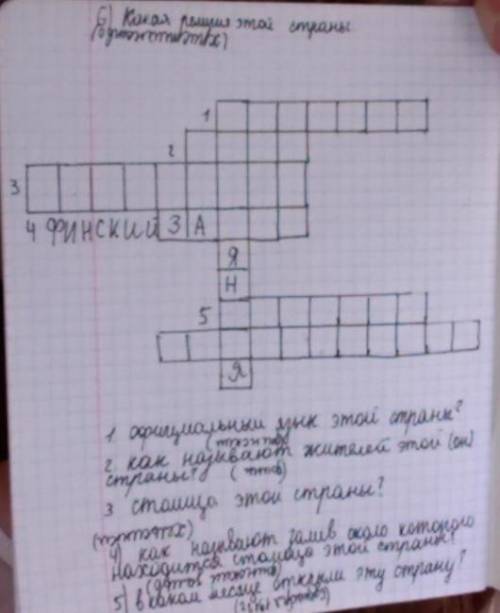 6) Какая религия этой страны
1
2
3
4 ФИНСКИЙ ЗА
Я
Н
5
Я
1 официальный язык этой страны?
2 как называют жителей этой (он)
страны?
3 столица этой страны?
4) как называют залив около которого
находится столица этой страны?
5) в каком месяце открыли эту страну?